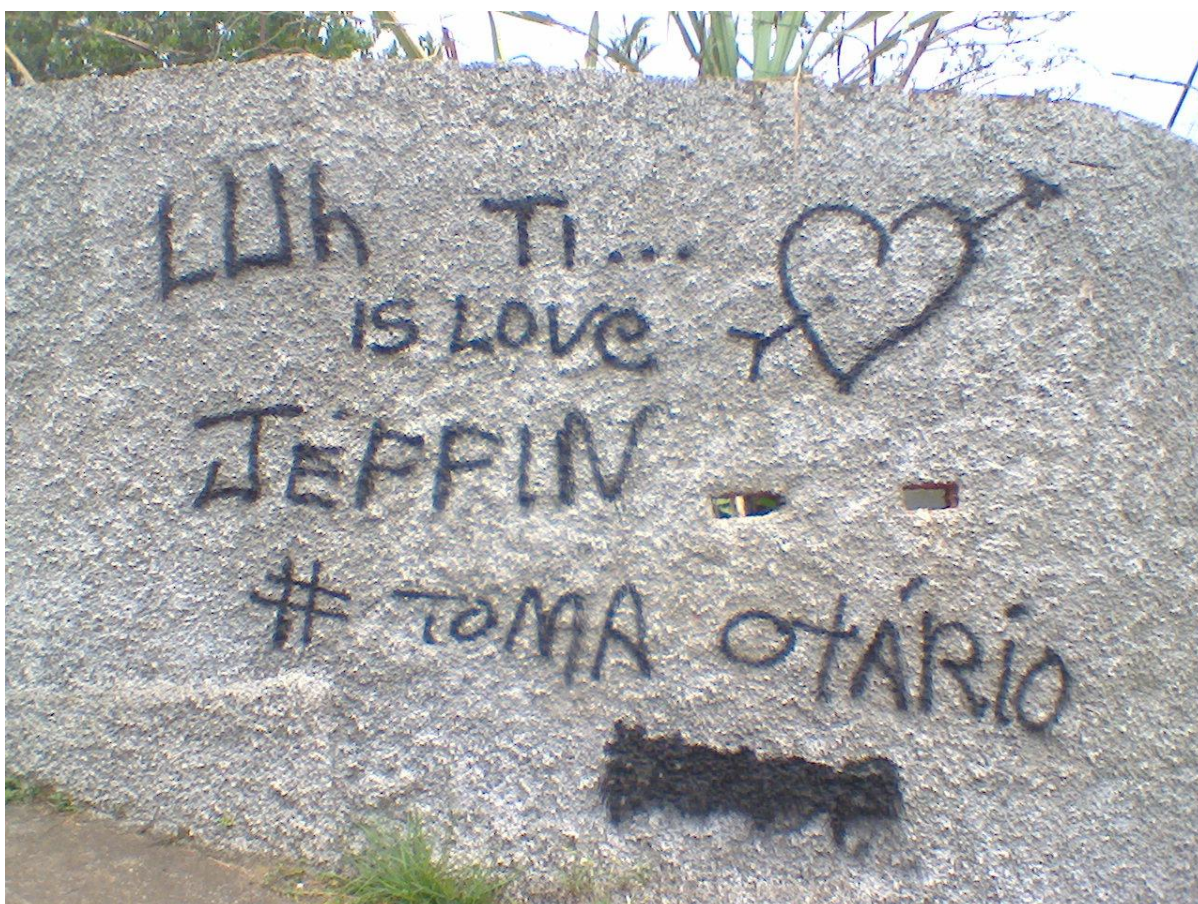 LUh Ti...
IS LOVE
JEFFIN
# TOMA OTÁRIO